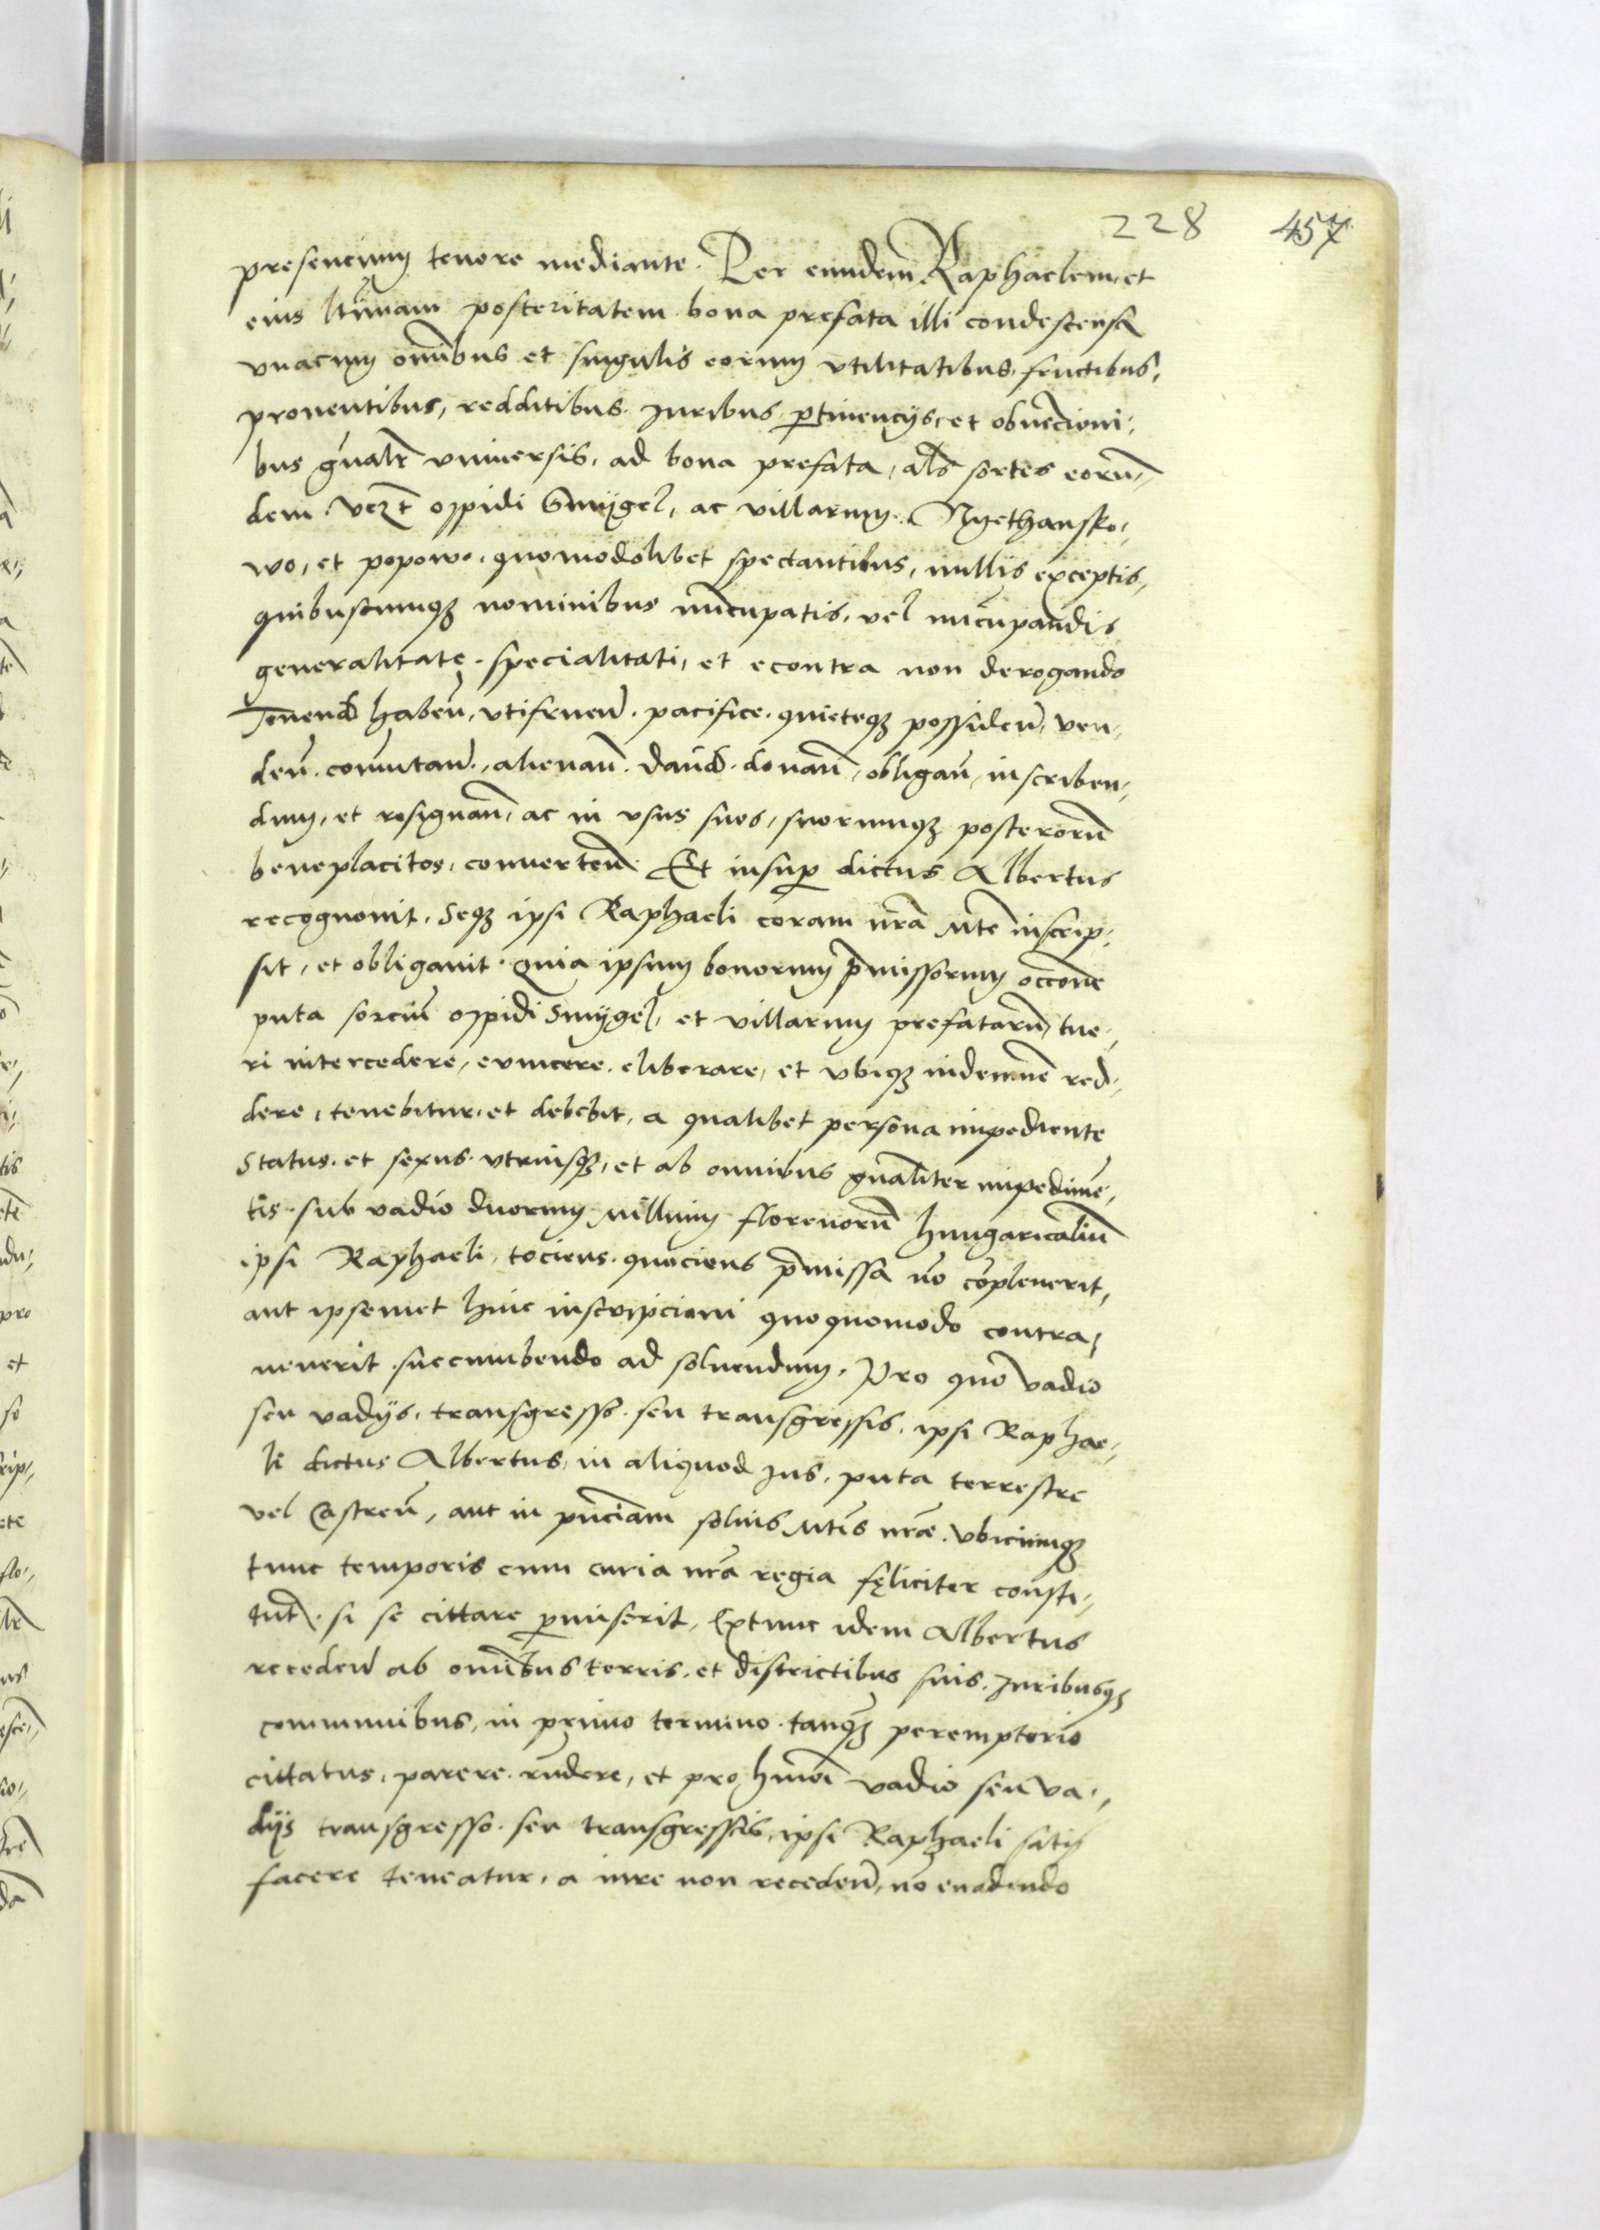 228 457
presencium tenore mediante. Per eundem Raphaelem, et
eius ltimam posteritatem bona prefata illi condescensa
vnacum omībus et singulis eorum vtilitatibus, fructibus,
prouentibus, redditibus Juribus ꝑtinencijs, et obuēcioni,
bus gn̄alr̄ vniuersis, ad bona prefata, als̄ sortes eorun̄,
dem. Vczt̄ oppidi Smÿgel, ac villarum. Nyethansko,
wo, et popowo, quomodolibet spectantibus, nullis exceptis,
quibuscumqȝ nominibus nūcupatis, vel nūcupandis
generalitate specialitati, et econtra non derogando
Tenend̄ haben̄, vtifruen̄. pacifice quieteqȝ possiden̄, ven,
den̄. comutan̄., alienan̄. dand̄. donan̄, obligan̄, inscriben,
dum, et resignan̄, ac in vsus suos, suorumqȝ posterorū
beneplacitos, conuerten̄. Et insuꝑ dictus Albertus
recognouit, Seqȝ ipsi Raphaeli coram nr̄a Mte inscrip,
sit, et obligauit. Quia ipsum bonorum p̄missorum occōne
puta sorciū oppidi Smÿgel, et villarum prefatarū, tue,
ri intercedere, euincere, eliberare, et vbiqȝ indemnē red,
dere, tenebitur, et debebit, a qualibet persona impediente
Status, et sexus vtriusqȝ, et ab omnibus gn̄aliter impedimē,
tis sub vadio duorum millium florenorū hungaricaliū
ipsi Raphaeli, tociens quociens p̄missa nō cōpleuerit,
aut ipsemet huic inscripcioni quoquomodo contra,
uenerit succumbendo ad soluendum. Pro quo vadio
seu vadijs, transgresso. seu transgressis, ipsi Raphae,
li dictus Albertus, in aliquod Jus, puta terrestre
vel Castren̄, aut in pn̄ciam solius Mtis nr̄e. vbicumqȝ
tunc temporis cum curia nr̄a regia fęliciter consti,
tut̄. si se cittare ꝑmiserit, Extunc idem Albertus
receden̄ ab omībus terris, et districtibus suis, Juribusqȝ
communibus, in primo termino tanqȝ peremptorio
cittatus, parere rn̄dere, et pro hmōi vadio seu va,
dijs transgresso. seu transgressis, ipsi Raphaeli satis
facere teneatur, a iure non receden̄, nō euadendo